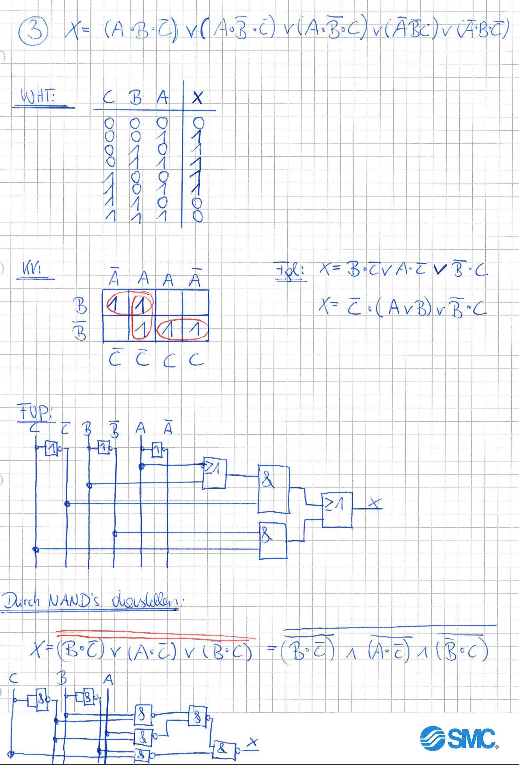 ③ X = (A∘B∘C̅) ∨ (A∘B̅∘C̅) ∨ (A∘B̅∘C) ∨ (A̅B̅C) ∨ (A̅∘B∘C̅)
WHT:
C B A X
0 0 0 0
0 0 1 1
0 1 0 1
0 1 1 1
1 0 0 1
1 0 1 1
1 1 0 0
1 1 1 0
KV:
A̅ A A A̅
B 1 1
B̅ 1 1 1
C̅ C̅ C C
Fgl: X = B∘C̅ ∨ A∘C̅ ∨ B̅∘C
X = C̅∘(A∨B) ∨ B̅∘C
FUP:
C C̅ B B̅ A A̅
1 1 1
≥1
&
≥1 X
&
Durch NAND's darstellen:
X = (B∘C̅) ∨ (A∘C̅) ∨ (B∘C) = (B∘C̅) ∧ (A∘C̅) ∧ (B̅∘C)
C B A
& &
& &
&
& X
&
SMC.